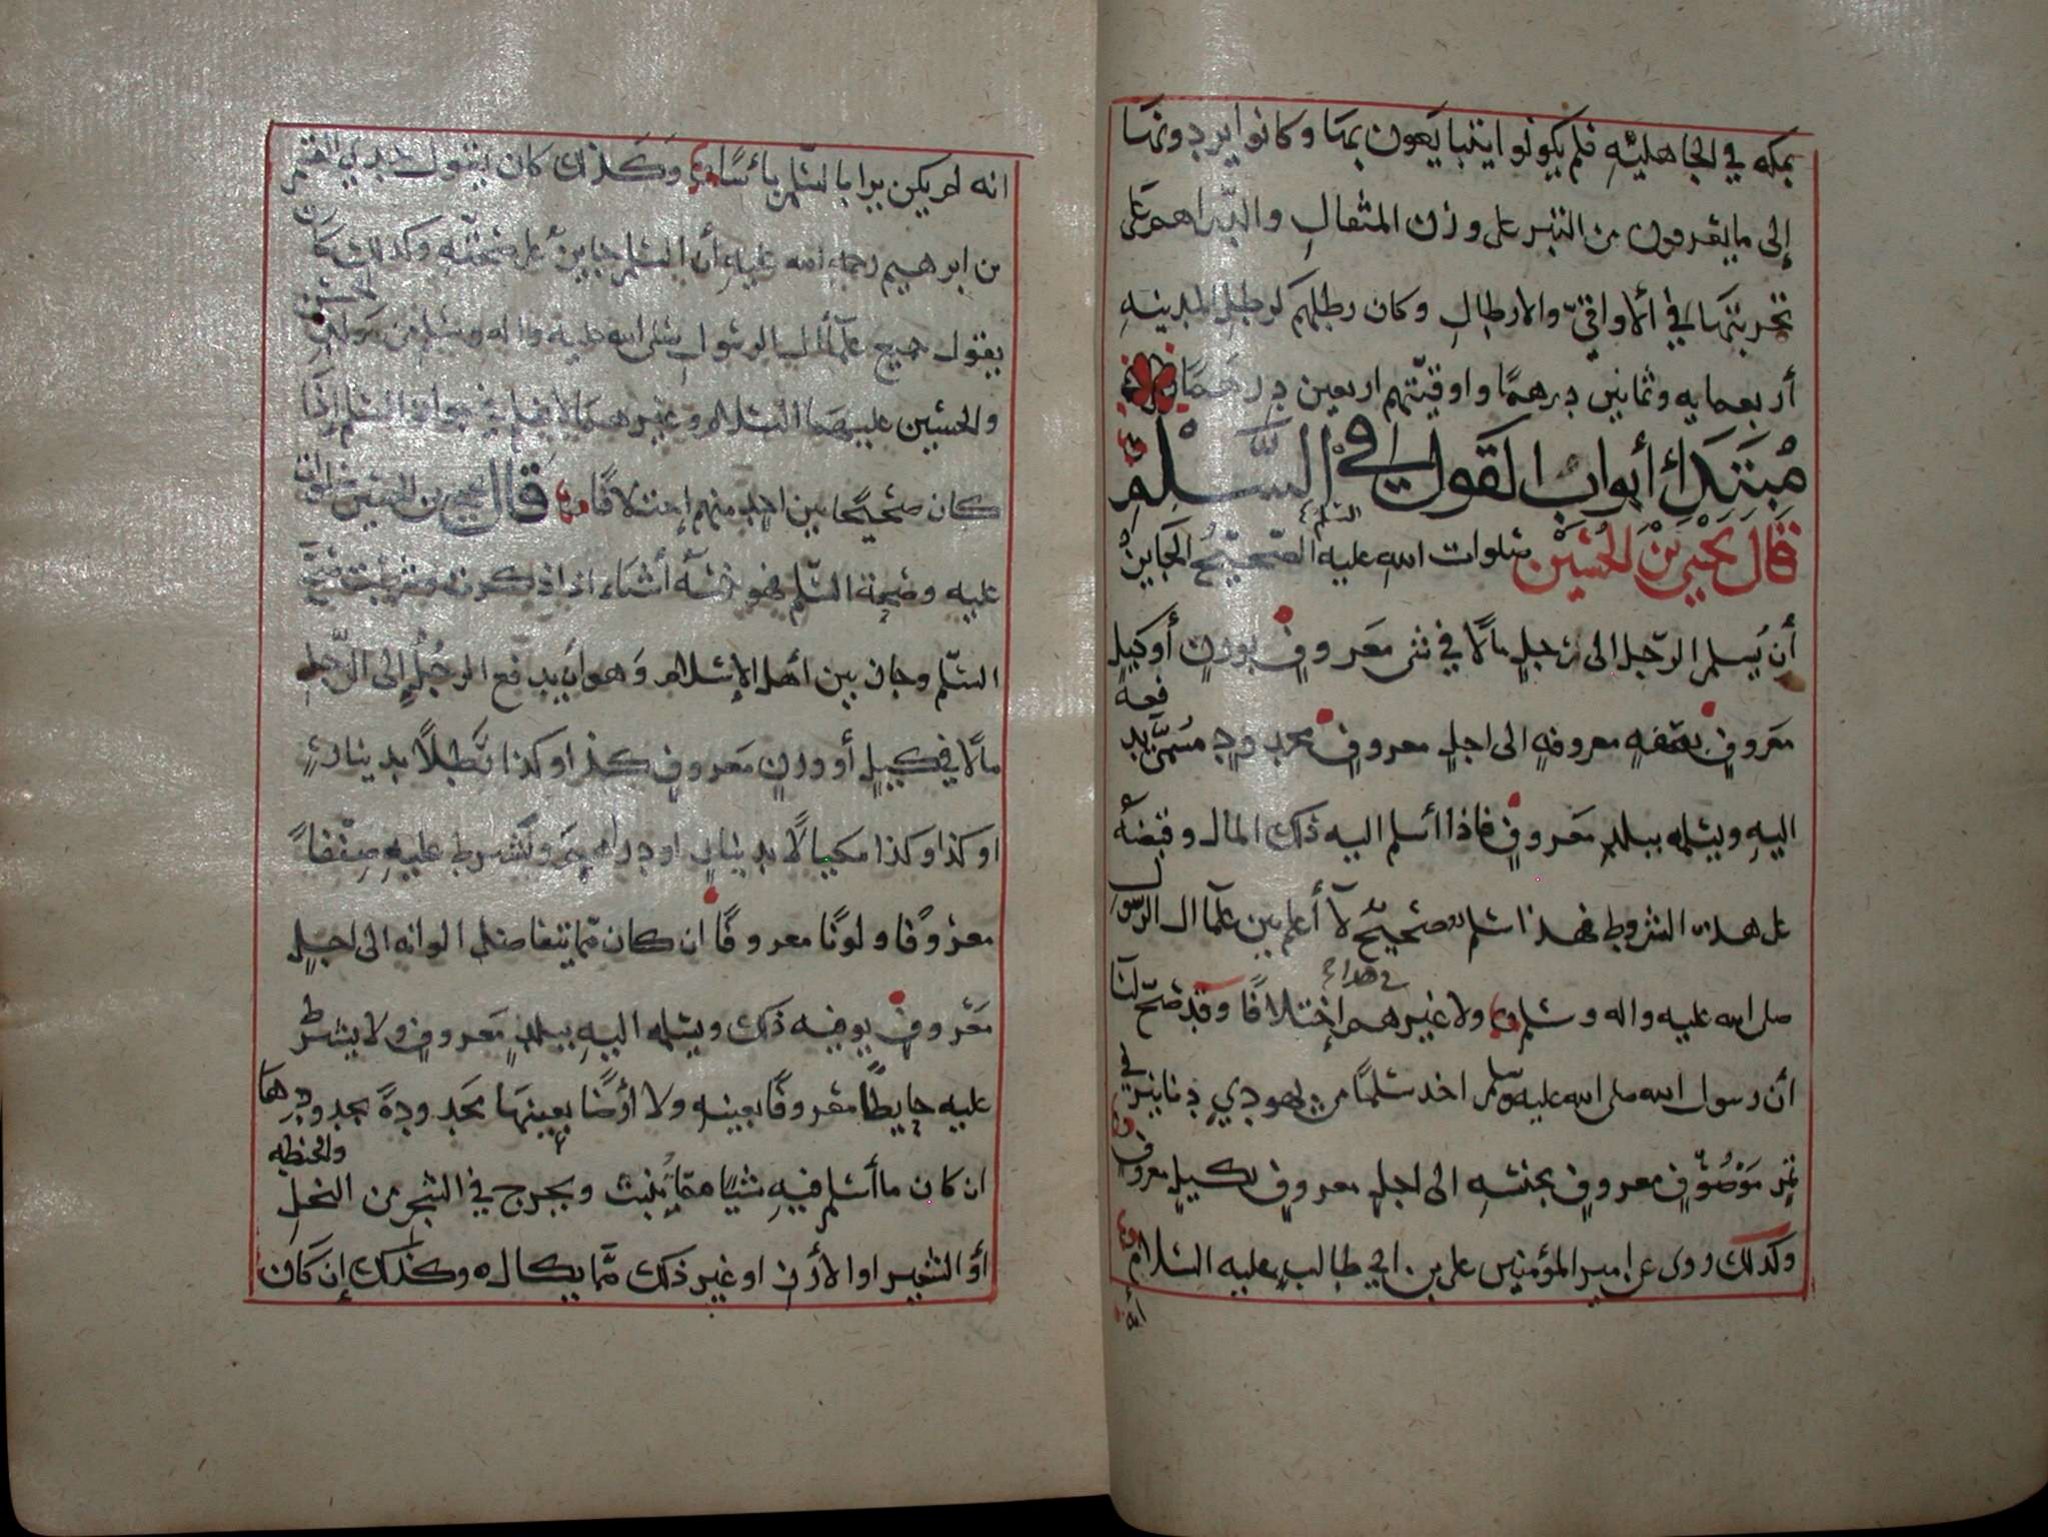 بمكه في الجاهليه فلم يكونوا يتبايعون بها وكانوا يردونها
إلى ما يعرفون من التبر على وزن المثقال والدراهم على
تجربتها في الاواقي والارطال وكان رطلهم كرطل المدينه
أربعمايه وثمانين درهما واوقيتهم اربعين درهما
مبتدأ أبواب القول في السلم
قال يحيى بن الحسين صلوات الله عليه السلم الصحيح الجايز
أن يسلم الرجل الى رجل مالا في شي معروف بوزن أو كيل
معروف بصفه معروفه الى اجل معروف محدود مسمى يدفعه
اليه ويسلمه ببلد معروف فاذا أسلم اليه ذلك المال وقبضه
على هذه الشروط فهذا سلم صحيح لا أعلم بين علما ال الرسول
صلى الله عليه واله وسلم ولا غيرهم في هذا إختلافا وقد صح لنا
أن رسول الله صلى الله عليه وسلم اخذ سلما من يهودي دنانير في
تمر موصوف معروف بجنسه الى اجل معروف بكيل معروف
وكذلك روى عن امير المؤمنين علي بن ابي طالب عليه السلام
انه
انه لم يكن يرا بالسلم بائسا وكذلك كان يقول جدي القسم
بن ابرهيم رحمة الله عليه أن السلم جايز على صحته وكذلك كان
يقول جميع علما أل الرسول صلى الله عليه واله وسلم من مولد الحسن
والحسين عليهما السلام وغيرهما لا نعلم في جواز السلم إذا
كان صحيحا بين احد منهم إختلافا قال يحيى بن الحسين صلوات
عليه وصحة السلم فهو خمسة أشياء اذا ذكرت وشرطت صح
السلم وجاز بين أهل الإسلام وهو أن يدفع الرجل إلى الرجل
مالا في كيل أو وزن معروف كذا وكذا رطلا بدينار
او كذا وكذا مكيالا بدينار او دراهم ويشرط عليه صفقا
معروفا ولونا معروفا ان كان مما يتفاضل الوانه الى اجل
معروف يوفيه ذلك ويسلمه اليه ببلد معروف ولا يشرط
عليه حايطا معروفا بعينه ولا أرضا بعينها محدودة بحدودها
ان كان ما أسلم فيه شيا مما ينبت ويخرج في الشجر من النخل والحنطه
أو الشعير او الأرز او غير ذلك مما يكال وكذلك إن كان